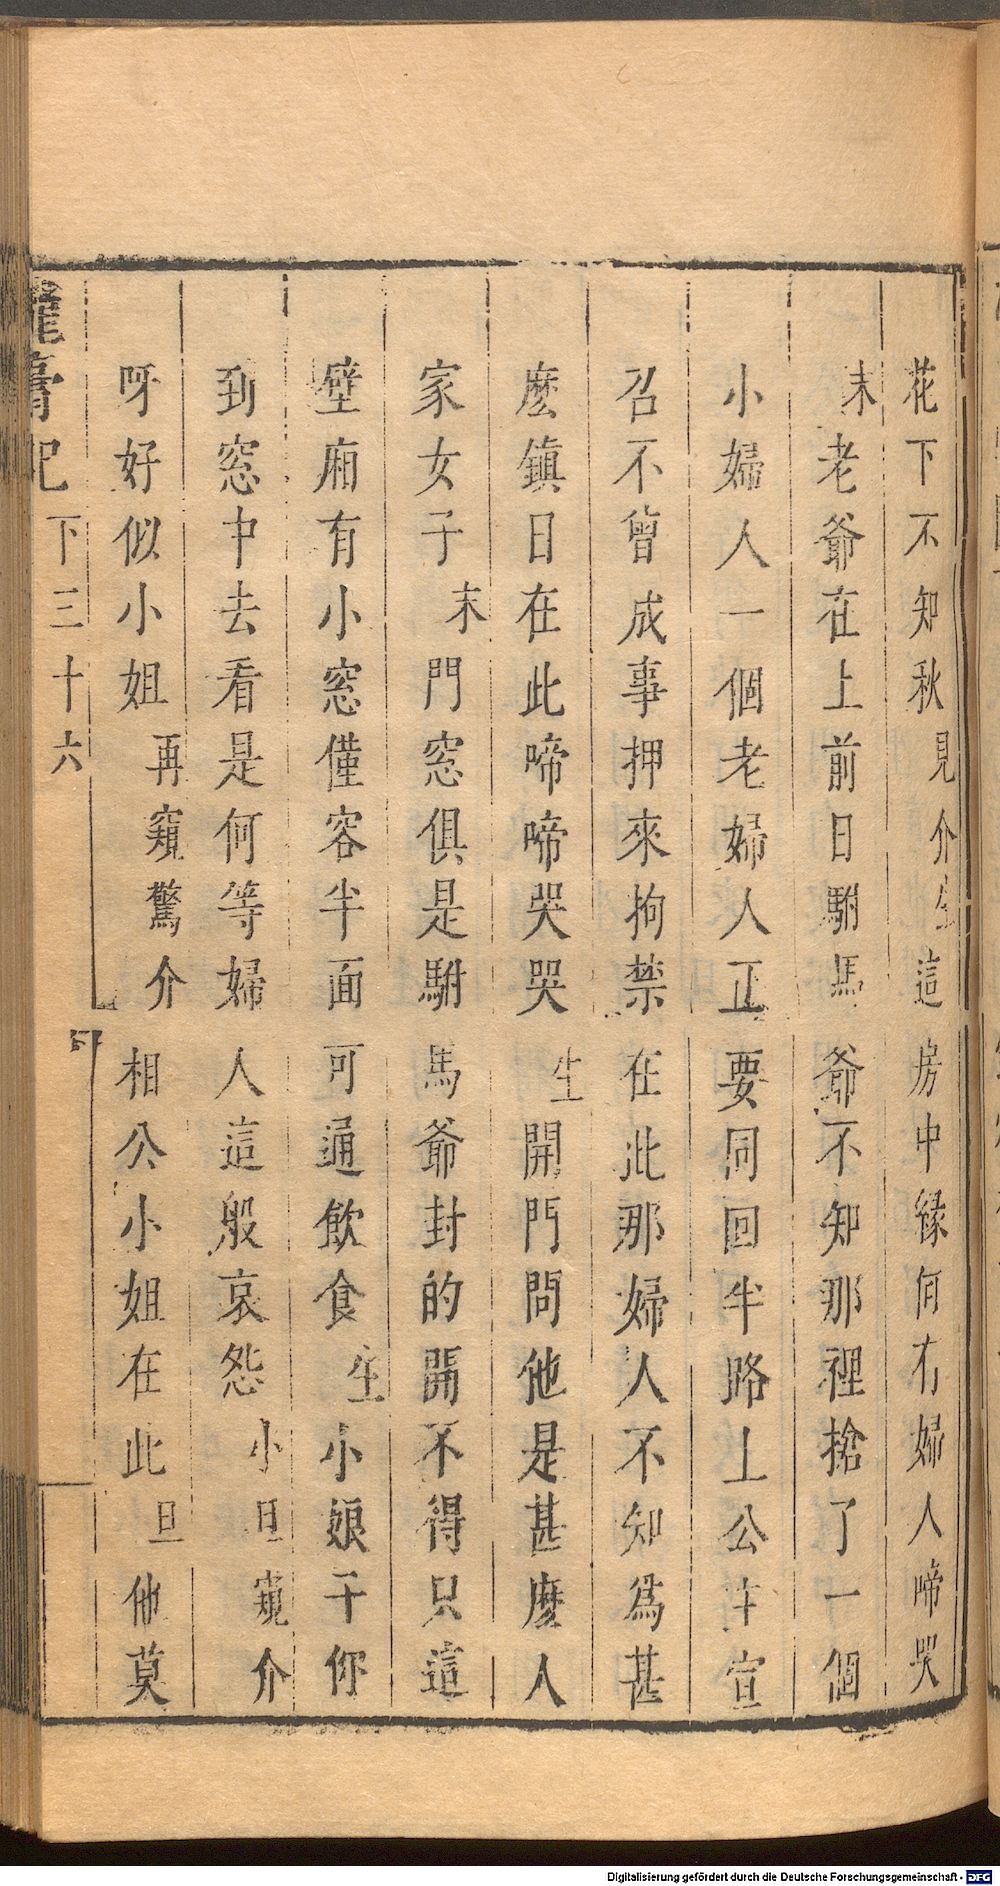 花下不知秋見介生這房中緣何有婦人啼哭
末老爺在上前日駙馬爺不知那裡搶了一個
小婦人一個老婦人正要同回半路上公主宣
召不曾成事押來拘禁在此那婦人不知為甚
麽鎮日在此啼啼哭哭生開門問他是甚麽人
家女子末門窓俱是駙馬爺封的開不得只這
壁廂有小窓僅容半面可通飲食生小娘子你
到窓中去看是何等婦人這般哀怨小旦窺介
呀好似小姐再窺驚介相公小姐在此旦他莫
龍膏記 下三十六
Digitalisierung gefördert durch die Deutsche Forschungsgemeinschaft - DFG